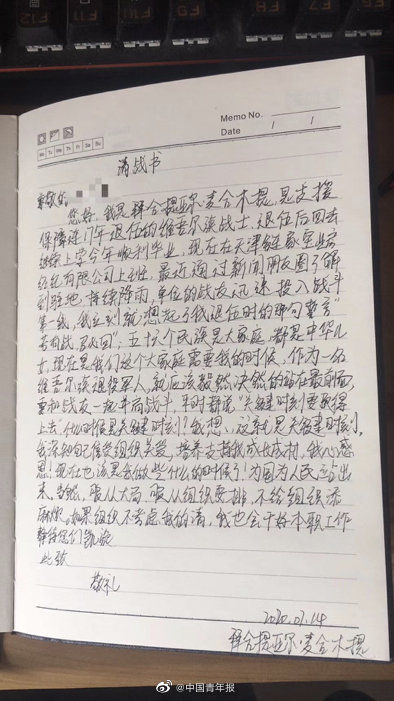 Memo No.
Date / /
Mo Tu We Th Fr Sa Su
请战书
尊敬的
您好，我是拜合提亚尔·麦合木提，是支援
保障连17年退伍的维吾尔族战士，退伍后回去
继续上学今年顺利毕业，现在在天津链家宝业房
经纪有限公司上班，最近通过新闻朋友圈了解
到驻地持续降雨，单位的战友迅速投入战斗
第一线，我立刻就想起了我退伍时的那句誓言"
若有战召必回；五十六个民族是大家庭，都是中华儿
女，现在是我们这个大家庭需要我的时候，作为一名
维吾尔族退役军人，就应该毅然决然的站在最前面，
重和战友一起并肩战斗，平时都说"关键时刻要顶得
上去"什么时候是关键时刻！我想，这就是关键时刻，
我深知自己倍受组织关爱，培养支持我成长成材，我心感
恩！现在也该是我做些什么的时候了！为国为人民站出
来，当然，服从大局服从组织安排，不给组织添
麻烦。如果组织不考虑我的请，我也会干好本职工作
静待您们凯旋
此致
敬礼
2020.07.14
拜合提亚尔·麦合木提
@中国青年报